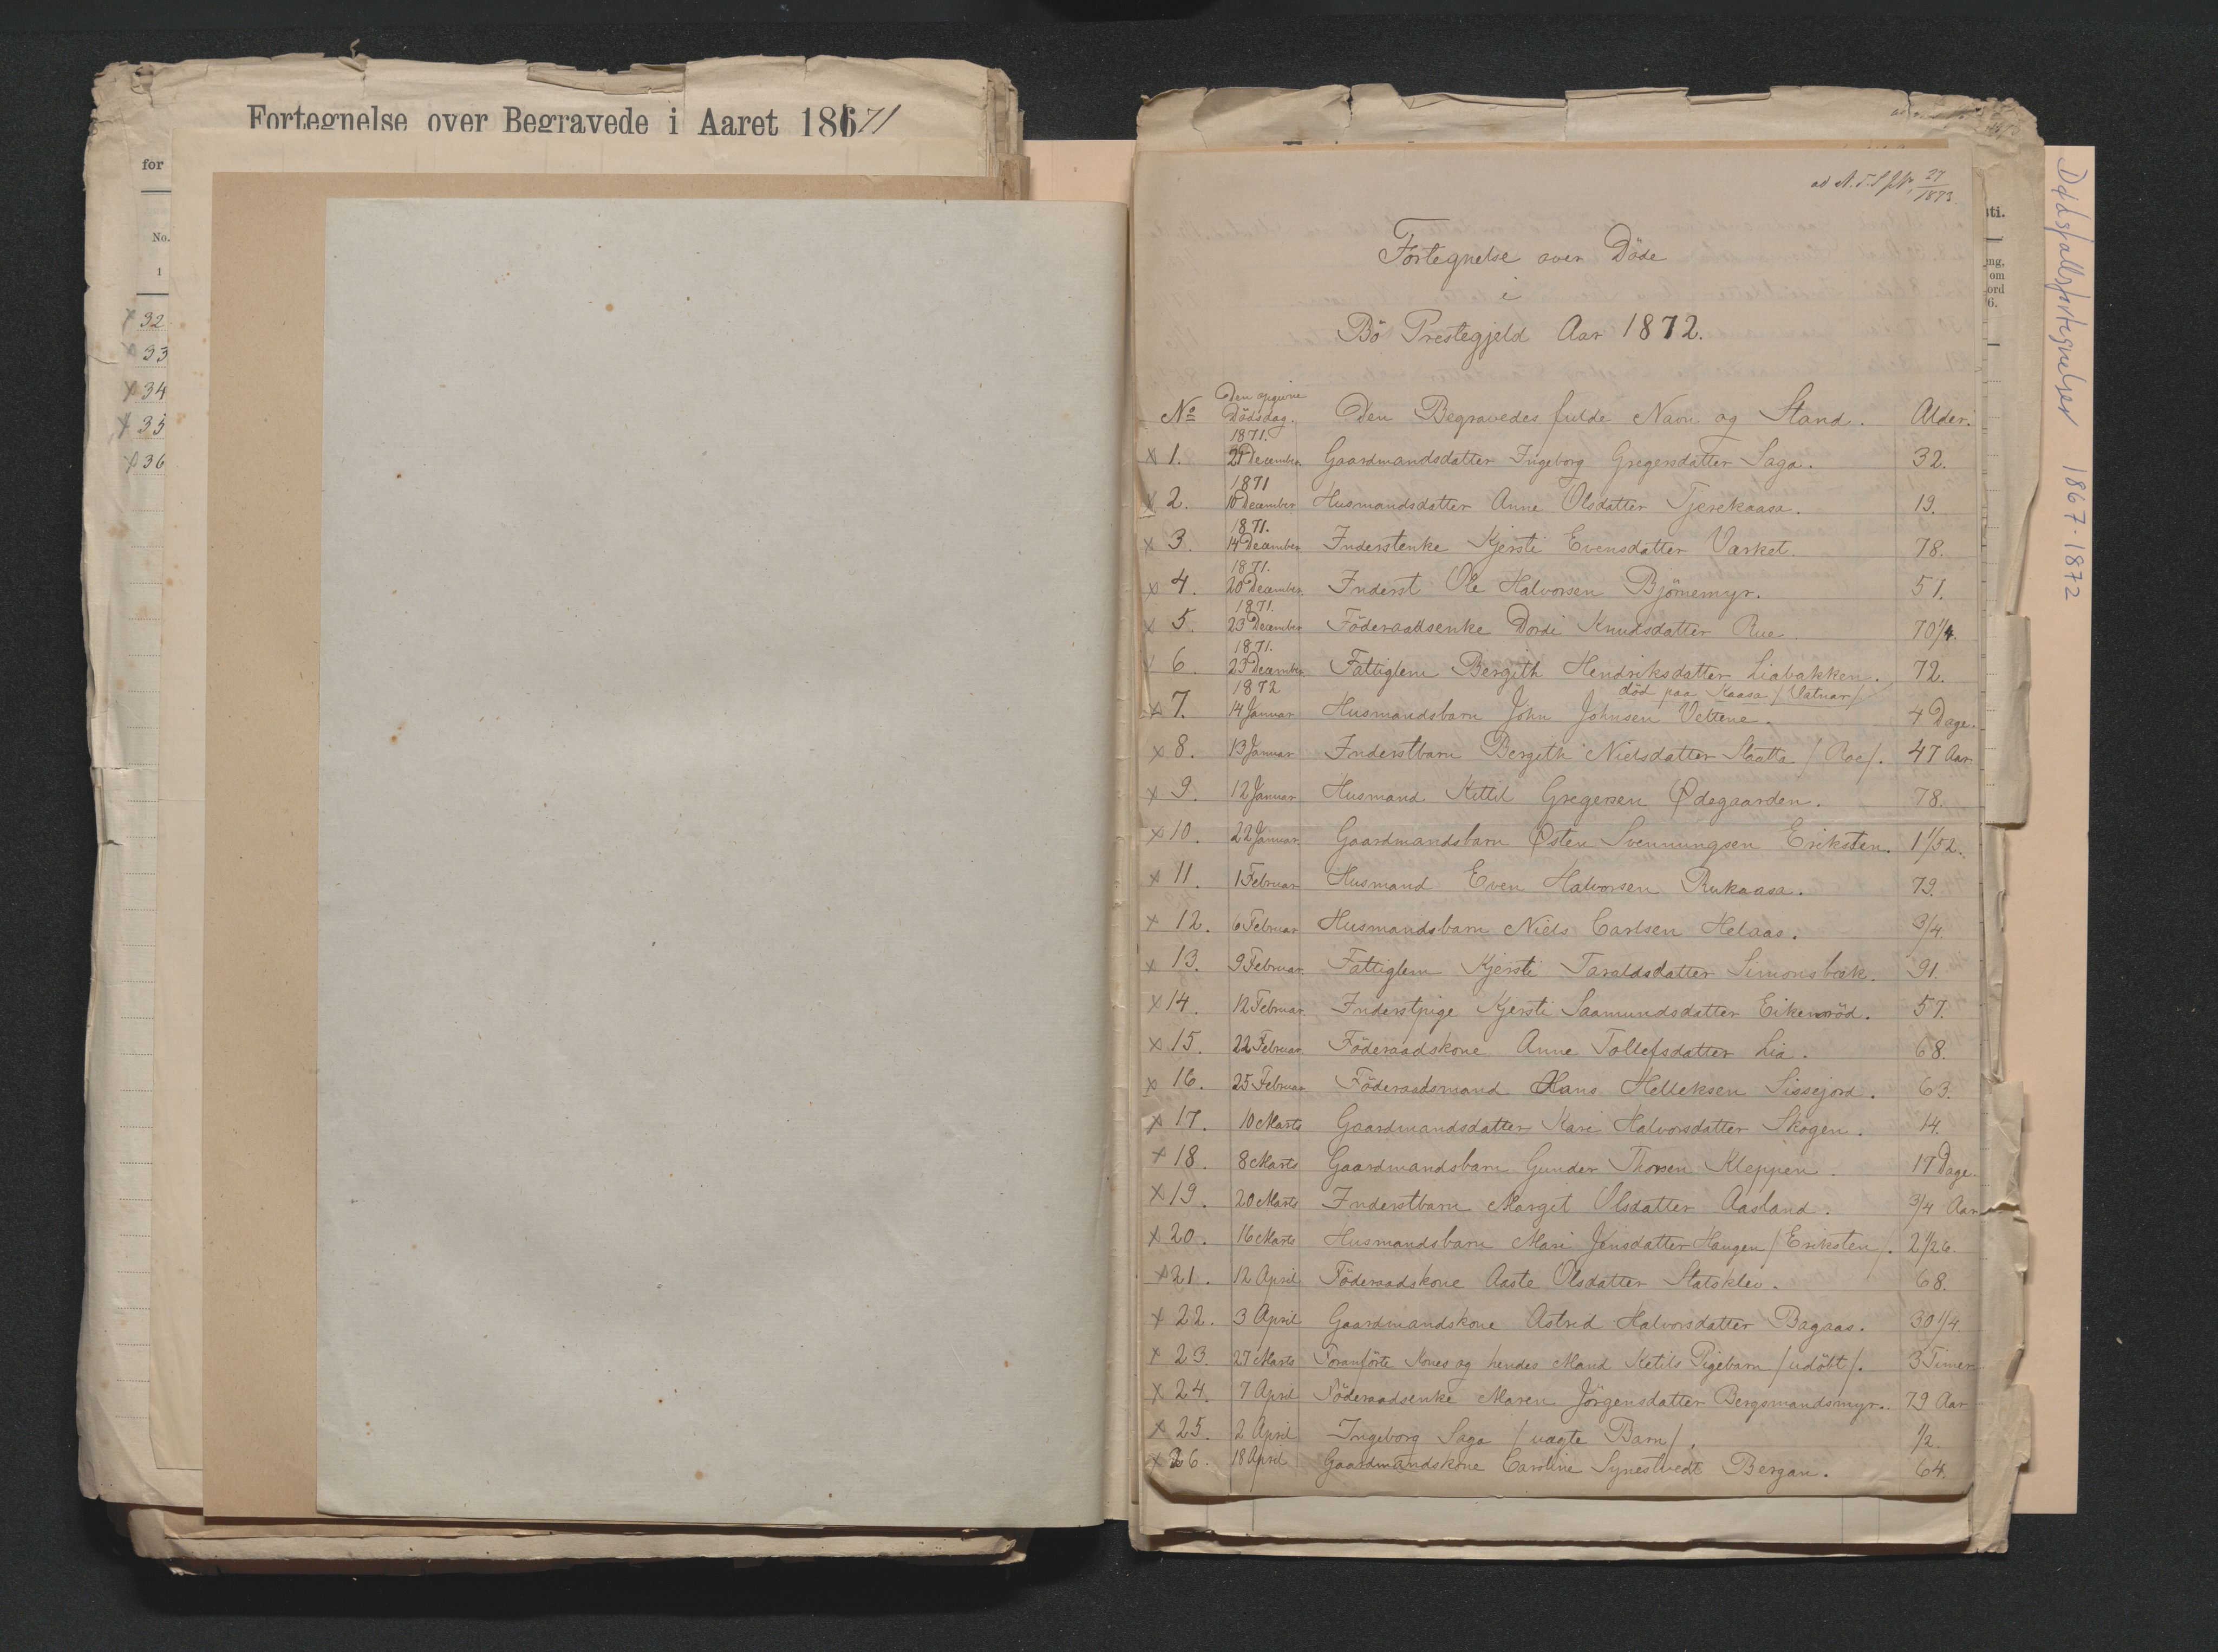 Fortegnelse over Begravede i Aaret 1871
for
No.
1
x 32
x 33
x 34
x 35
x 36
27
1873
Fortegnelse over Döde
i
Bö Prestegjeld Aar 1872.
No Den opgivne Dödsdag. Den Begravedes fulde Navn og Stand. Alder.
1871.
x 1. 21 December Gaardmandsdatter Ingeborg Gregersdatter Saga. 32.
1871
x 2. 10 December Husmandsdatter Anne Olsdatter Tjerekaasa. 19.
1871.
x 3. 14 December Inderstenke Kjersti Evensdatter Værket. 78.
1871.
x 4. 20 December Inderst Ole Halvorsen Bjørnemyr. 51.
1871.
x 5. 23 December Föderaadsenke Dordi Knudsdatter Rue 70 1/4.
1871.
x 6. 23 December Fattiglem Bergith Hendriksdatter Liabakken. 72.
1872 död paa Kaasa /Vatnar/
x 7. 14 Januar Husmandsbarn John Johnsen Veltene. 4 Dage.
x 8. 13 Januar Inderstbarn Bergith Nielsdatter Slaatta /Roe/. 47 Aar
x 9. 12 Januar Husmand Kittil Gregersen Ødegaarden. 78.
x 10. 22 Januar Gaardmandsbarn Østen Svennungsen Eriksten. 1 1/52.
x 11. 1 Februar Husmand Even Halvorsen Rukaasa. 79.
x 12. 6 Februar Husmandsbarn Niels Carlsen Helaas. 3/4.
x 13. 9 Februar. Fattiglem Kjersti Taraldsdatter Simonsbæk. 91.
x 14. 12 Februar. Inderstpige Kjersti Saamundsdatter Eikenröd. 57.
x 15. 22 Februar. Föderaadskone Anne Tollefsdatter Lia. 68.
x 16. 25 Februar Föderaadsmand Hans Helleksen Sissejord. 63.
x 17. 10 Marts Gaardmandsdatter Kari Halvorsdatter Skogen. 14.
x 18. 8 Marts Gaardmandsbarn Gunder Thorsen Kleppen. 17 Dage.
x 19. 20 Marts Inderstbarn Margit Olsdatter Aasland. 3/4 Aar
x 20. 16 Marts Husmandsbarn Mari Jensdatter Haugen /Eriksten/. 2 1/26
x 21. 12 April Föderaadskone Aaste Olsdatter Statsklev. 68.
x 22. 3 April Gaardmandskone Astrid Halvorsdatter Bagaas. 30 1/4.
x 23. 27 Marts Foranförte Kones og hendes Mand Ketils Pigebarn /udöbt/. 3 Timer
x 24. 7 April Föderaadsenke Maren Jörgensdatter Bergsmandsmyr. 79 Aar
x 25. 2 April Ingeborg Saga /uægte Barn/. 1/2.
x 26. 18 April Gaardmandskone Caroline Synestvedt Bergan. 64.
sti.
ing,
om
ord
6.
Dødsfallsfortegnelser 1867-1872